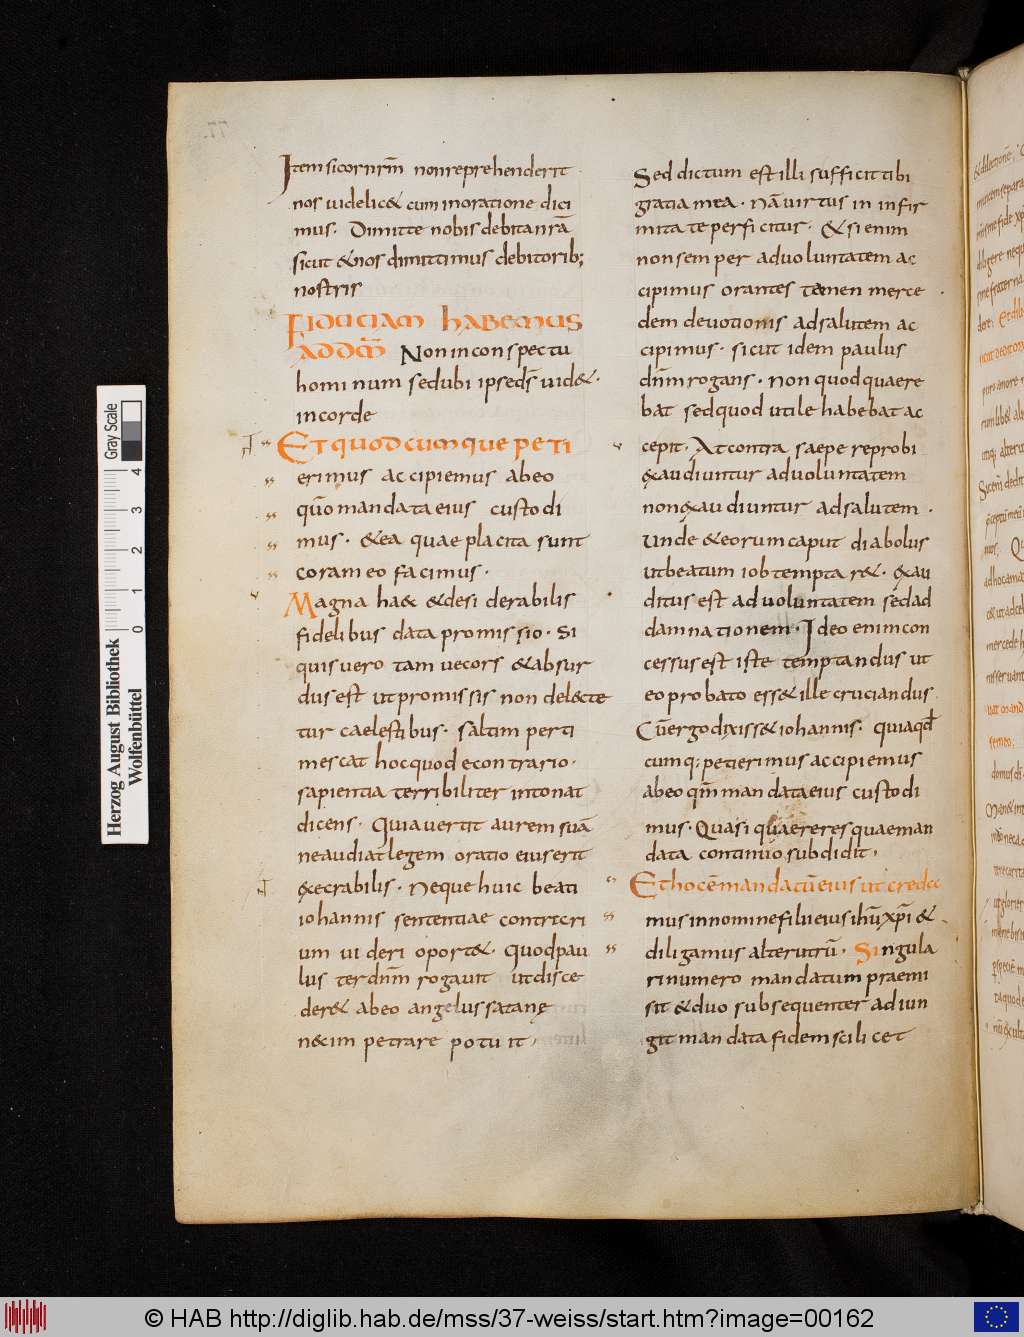 Item si cor nr̄m non reprehenderit
nos videlic& cum in oratione dici
mus. Dimitte nobis debita nr̄a
sicut & nos dimittimus debitorib;
nostris
FIDUCIAM HABEMUS
AD DM̄ Non in conspectu
hominum sed ubi ipse d̄s vid&.
in corde
Et quodcumque peti
erimus accipiemus ab eo
qūo mandata eius custodi
mus. & ea quae placita sunt
coram eo facimus.
Magna ha& & desiderabilis
fidelibus data promissio. Si
quis vero tam vecors & absur
dus est ut promissis non delecte
tur caelestibus. saltim perti
mescat hoc quod econtrario.
sapientia terribiliter intonat
dicens. Quia vertit aurem suā
ne audiat legem oratio eius erit
execrabilis. Neque huic beati
iohannis sententiae contrari
um videri oport&. Quod pau
lus ter dn̄m rogavit ut disce
der& ab eo angelus satanę
n& impetrare potuit.
Sed dictum est illi sufficit tibi
gratia mea. nā virtus in infir
mitate perficitur. & si enim
non semper ad voluntatem ac
cipimus orantes tamen merce
dem devotionis ad salutem ac
cipimus. sicut idem paulus
dn̄m rogans. non quod quaere
bat sed quod utile habebat ac
cepit. At contra saepe reprobi
exaudiuntur ad voluntatem
non exaudiuntur ad salutem.
Unde & eorum caput diabolus
ut beatum iob temptar&. exau
ditus est ad voluntatem sed ad
damnationem. Ideo enim con
cessus est iste temptandus ut
eo probato ess& ille cruciandus.
Cū ergo dixiss& iohannis. quia qd̄
cumq; petierimus accipiemus
ab eo qm̄ mandata eius custodi
mus. Quasi quaereres quae man
data continuo subdidit.
Et hoc ē mandatū eius ut creda
mus in nomine filii eius ih̄u xp̄i &
diligamus alterutrū. Singula
ri numero mandatum praemi
sit & duo subsequenter adiun
git mandata fidem scilicet
Herzog August Bibliothek
Wolfenbüttel
0 1 2 3 4
Gray Scale
© HAB http://diglib.hab.de/mss/37-weiss/start.htm?image=00162